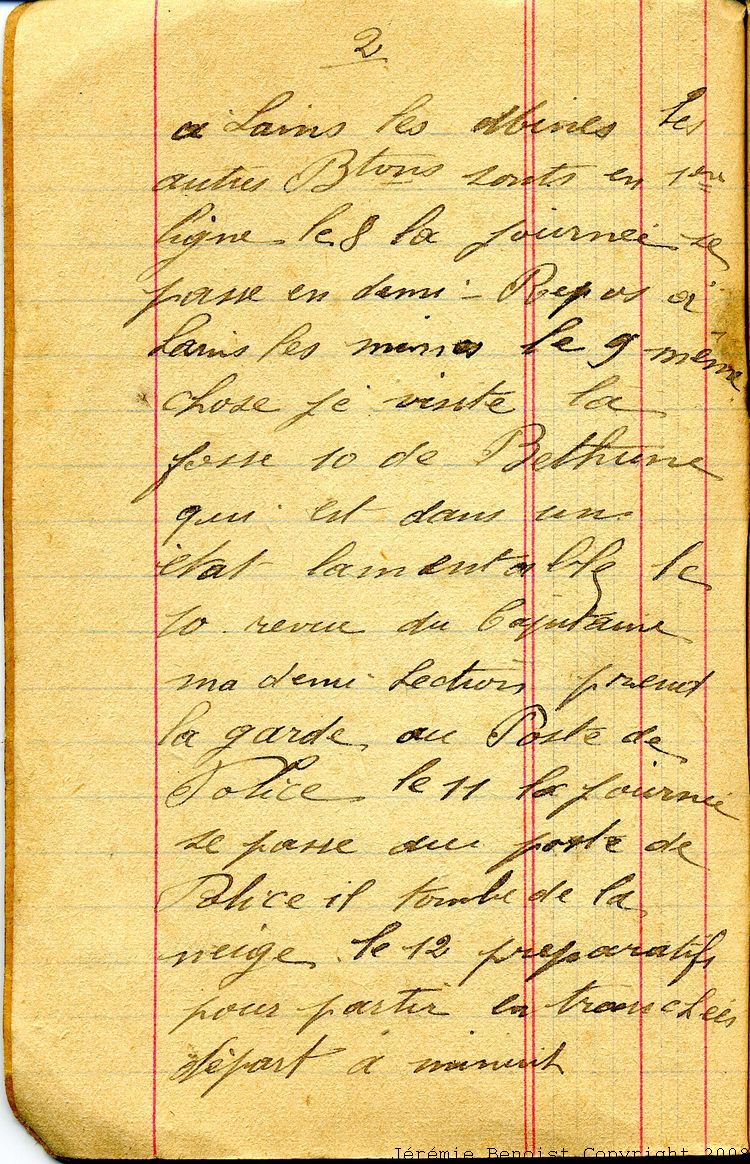 2
a Sains les Mines les
autres Btons sonts en 1ere
ligne le 8 la journeé se
passe en demi-Repos à
Sains les mines le 9 même
chose je visite la
fosse 10 de Bethune
qui est dans un
état lamentable le
10 revue du Capitaine
ma demi Section prend
la garde au Poste de
Police le 11 la journeé
se passe au poste de
Police il tombe de la
neige le 12 preparatifs
pour partir en tranchées
départ à minuit
Jérémie Benoist Copyright